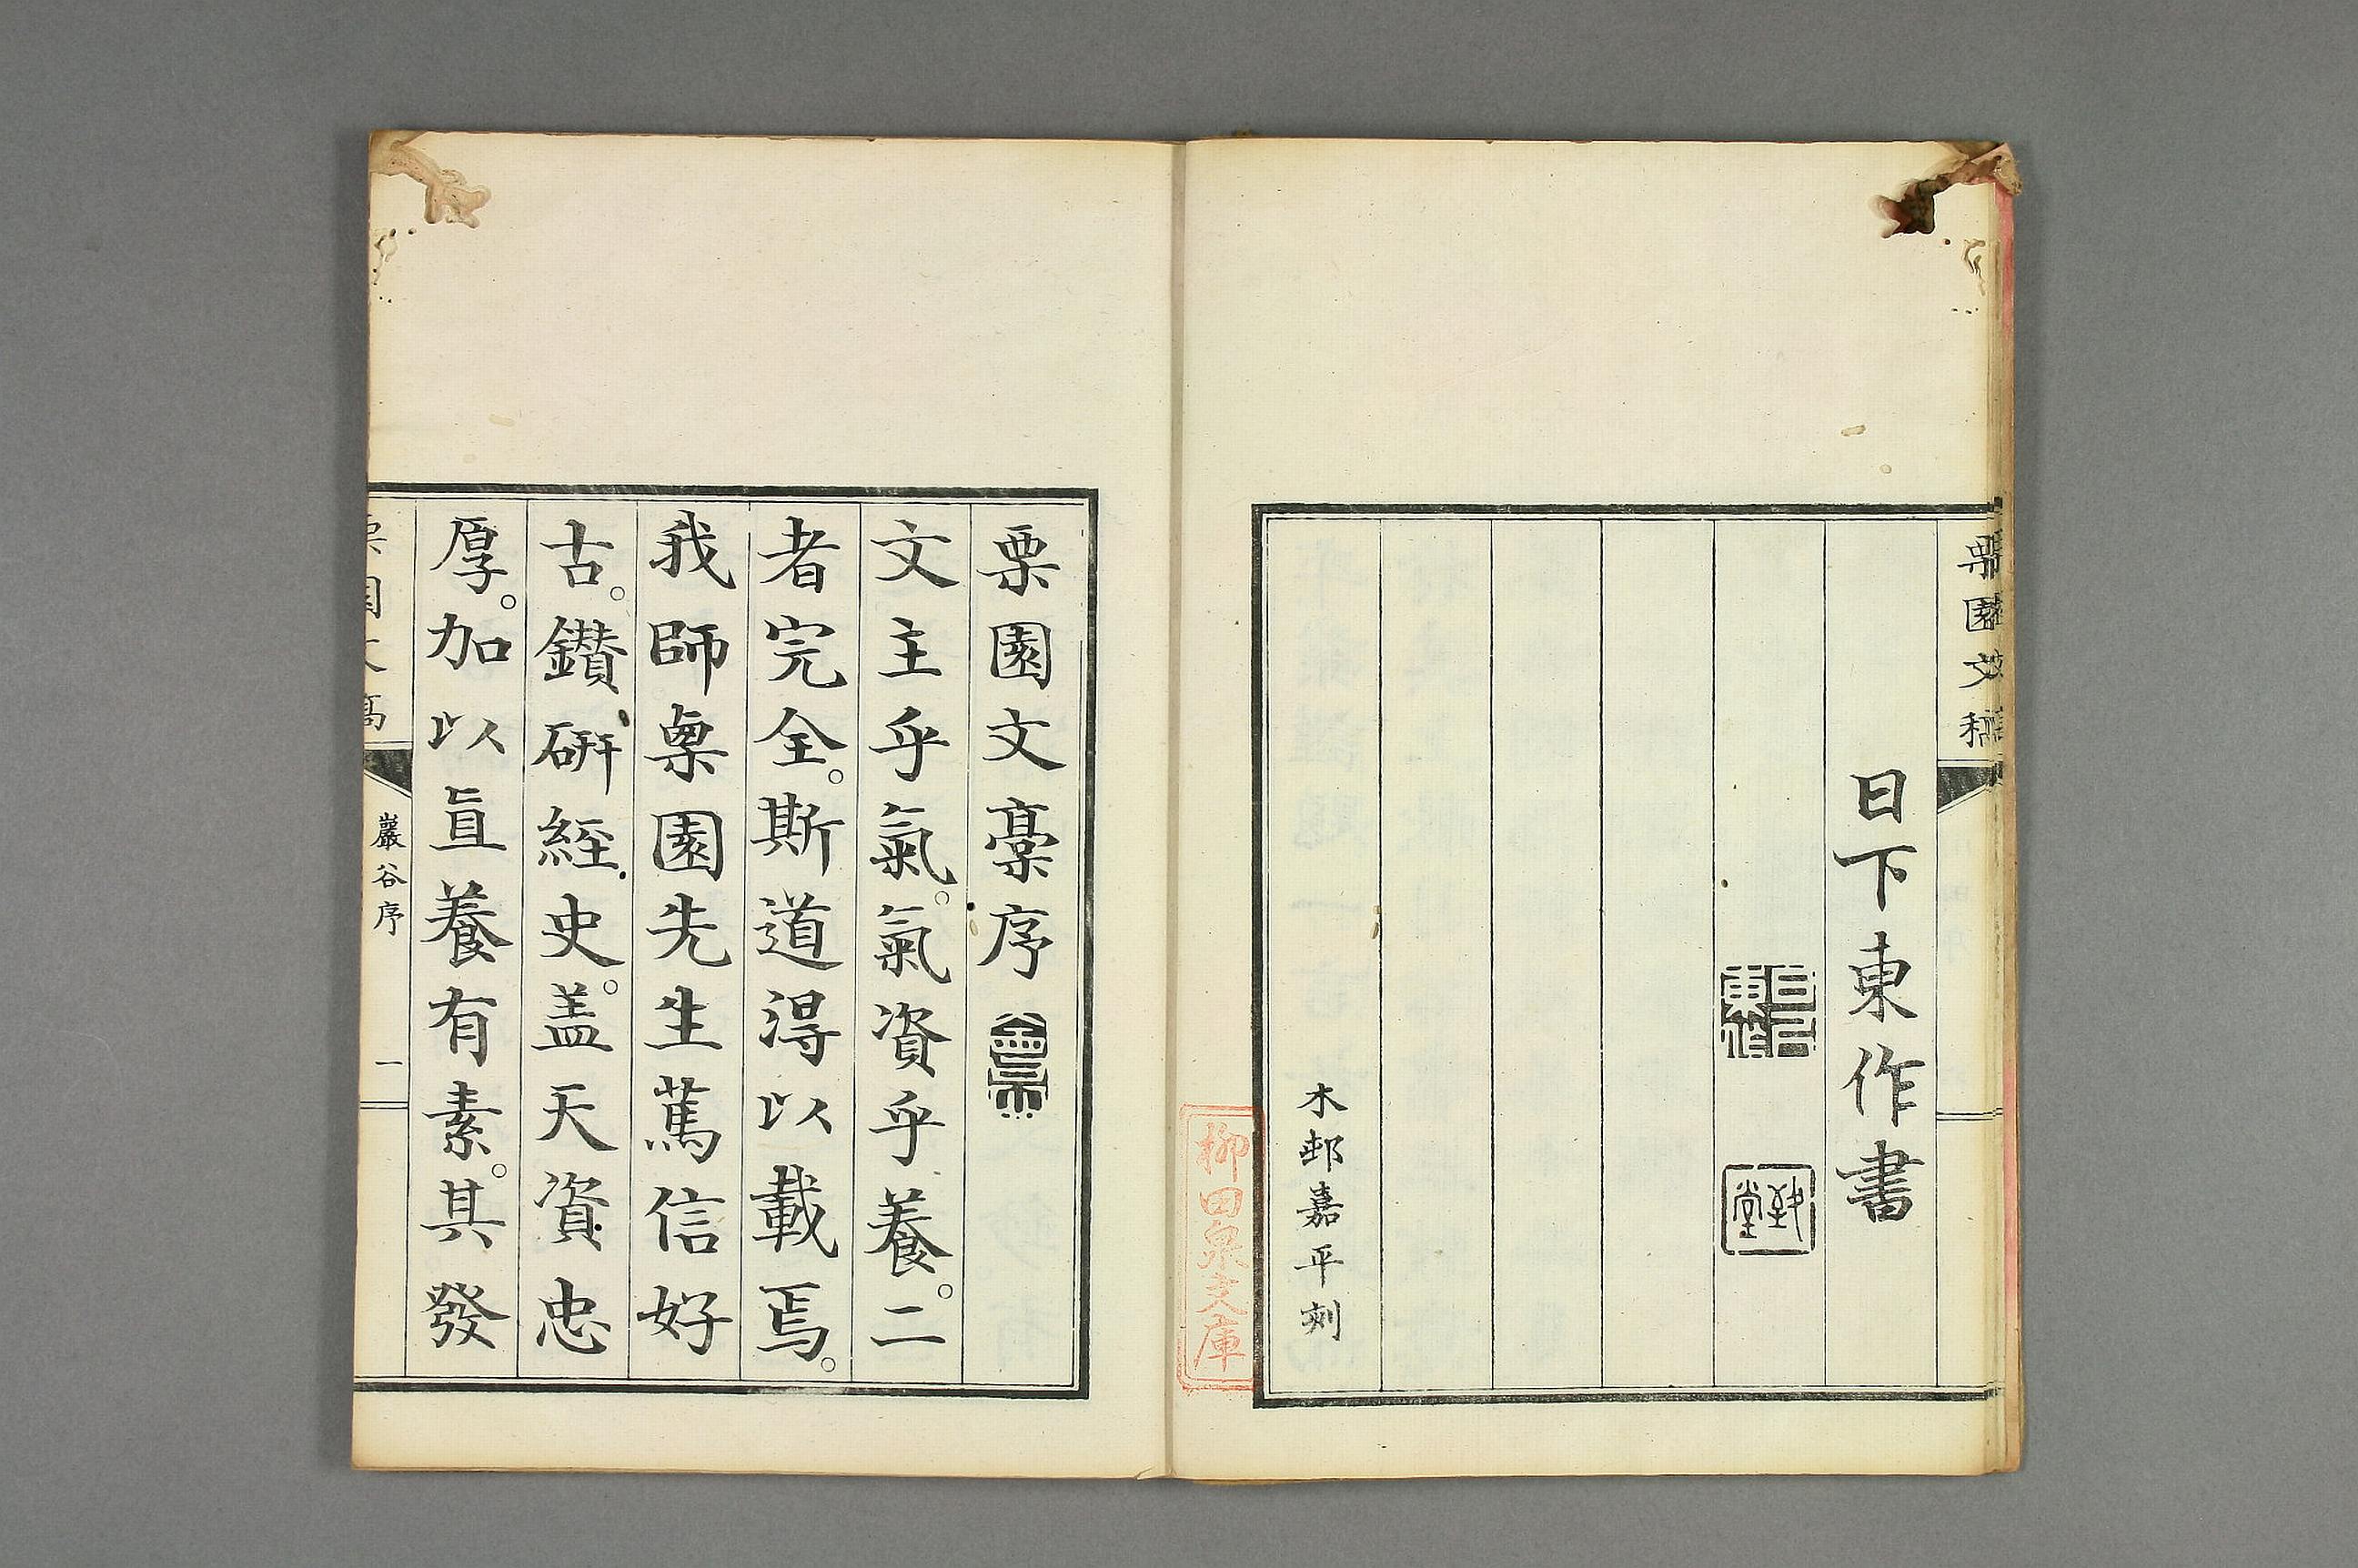 栗園文稿
日下東作書
日下東作
木邨嘉平刻
柳田泉文庫
栗園文稾序
文主乎氣。氣資乎養。二
者完全。斯道得以載焉。
我師㮚園先生篤信好
古。鑚研經史。盖天資忠
厚。加以直養有素。其發
栗園文稿
巖谷序
一